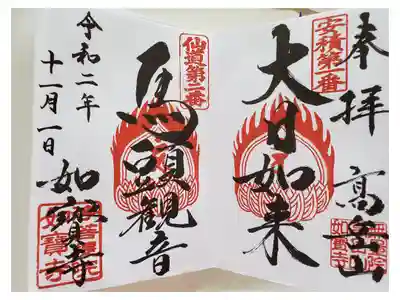 奉拝
安積第一番
大日如来
高岳山
仙道第三番
馬頭観音
令和二年
十一月一日
如寶寺
如寶寺